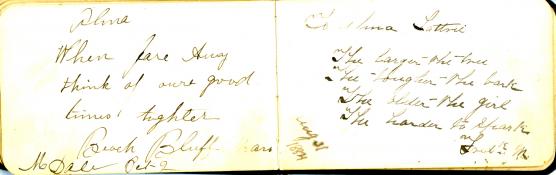 Alma
When fare Away
think of oure good
times' togHter
Beach Bluff
M Dale Oct-2
To Alma
The larger the tree
The tougher the bark
The older the girl
The harder to Spark
Aug 31